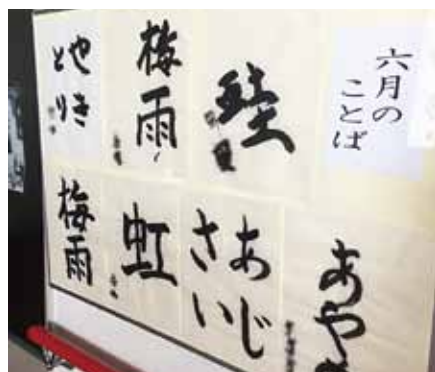 六月の
ことば
梅雨
やき
とり
あや
あじ
さい
虹
梅雨